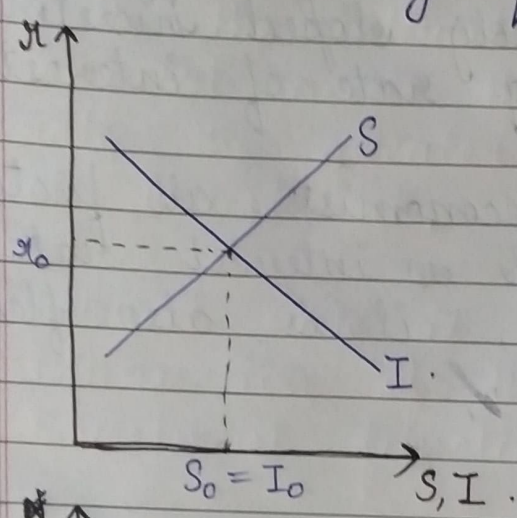 r
S
r₀
I.
S₀ = I₀
S, I.